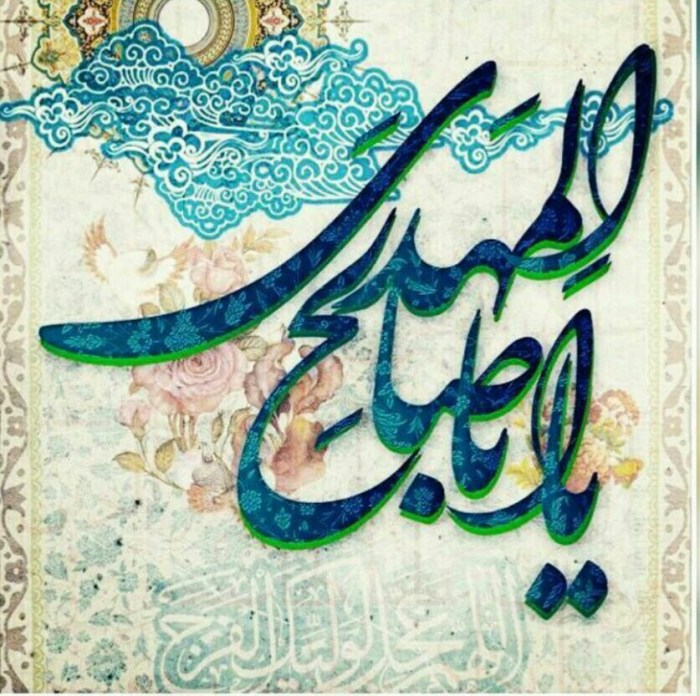 یا اباصالح
المهدی
اللهم عجل لولیک الفرج